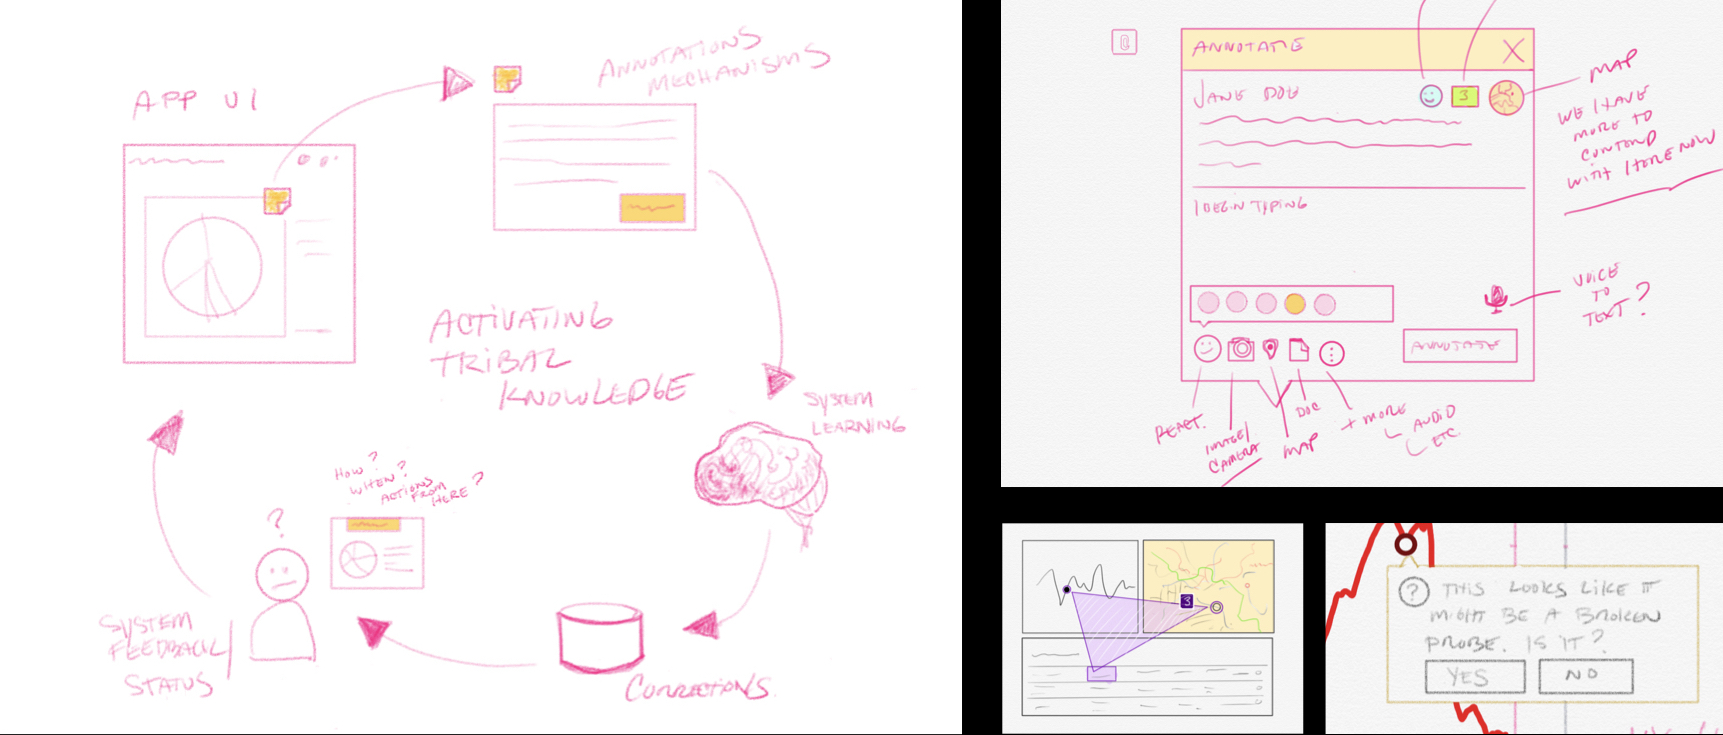 APP UI
ANNOTATIONS
MECHANISMS
ACTIVATING
TRIBAL
KNOWLEDGE
SYSTEM
LEARNING
CORRECTIONS
HOW?
WHEN?
ACTIONS
FROM
HERE?
?
SYSTEM
FEEDBACK/
STATUS
ANNOTATE X
JANE DOE
3
MAP
WE HAVE
MORE TO
CONTEND
WITH HERE NOW
I BEGIN TYPING
VOICE
TO
TEXT?
ANNOTATE
REACT.
IMAGE/
CAMERA
MAP
DOC
+ MORE
AUDIO
ETC
3
? THIS LOOKS LIKE IT
MIGHT BE A BROKEN
PROBE. IS IT?
YES NO